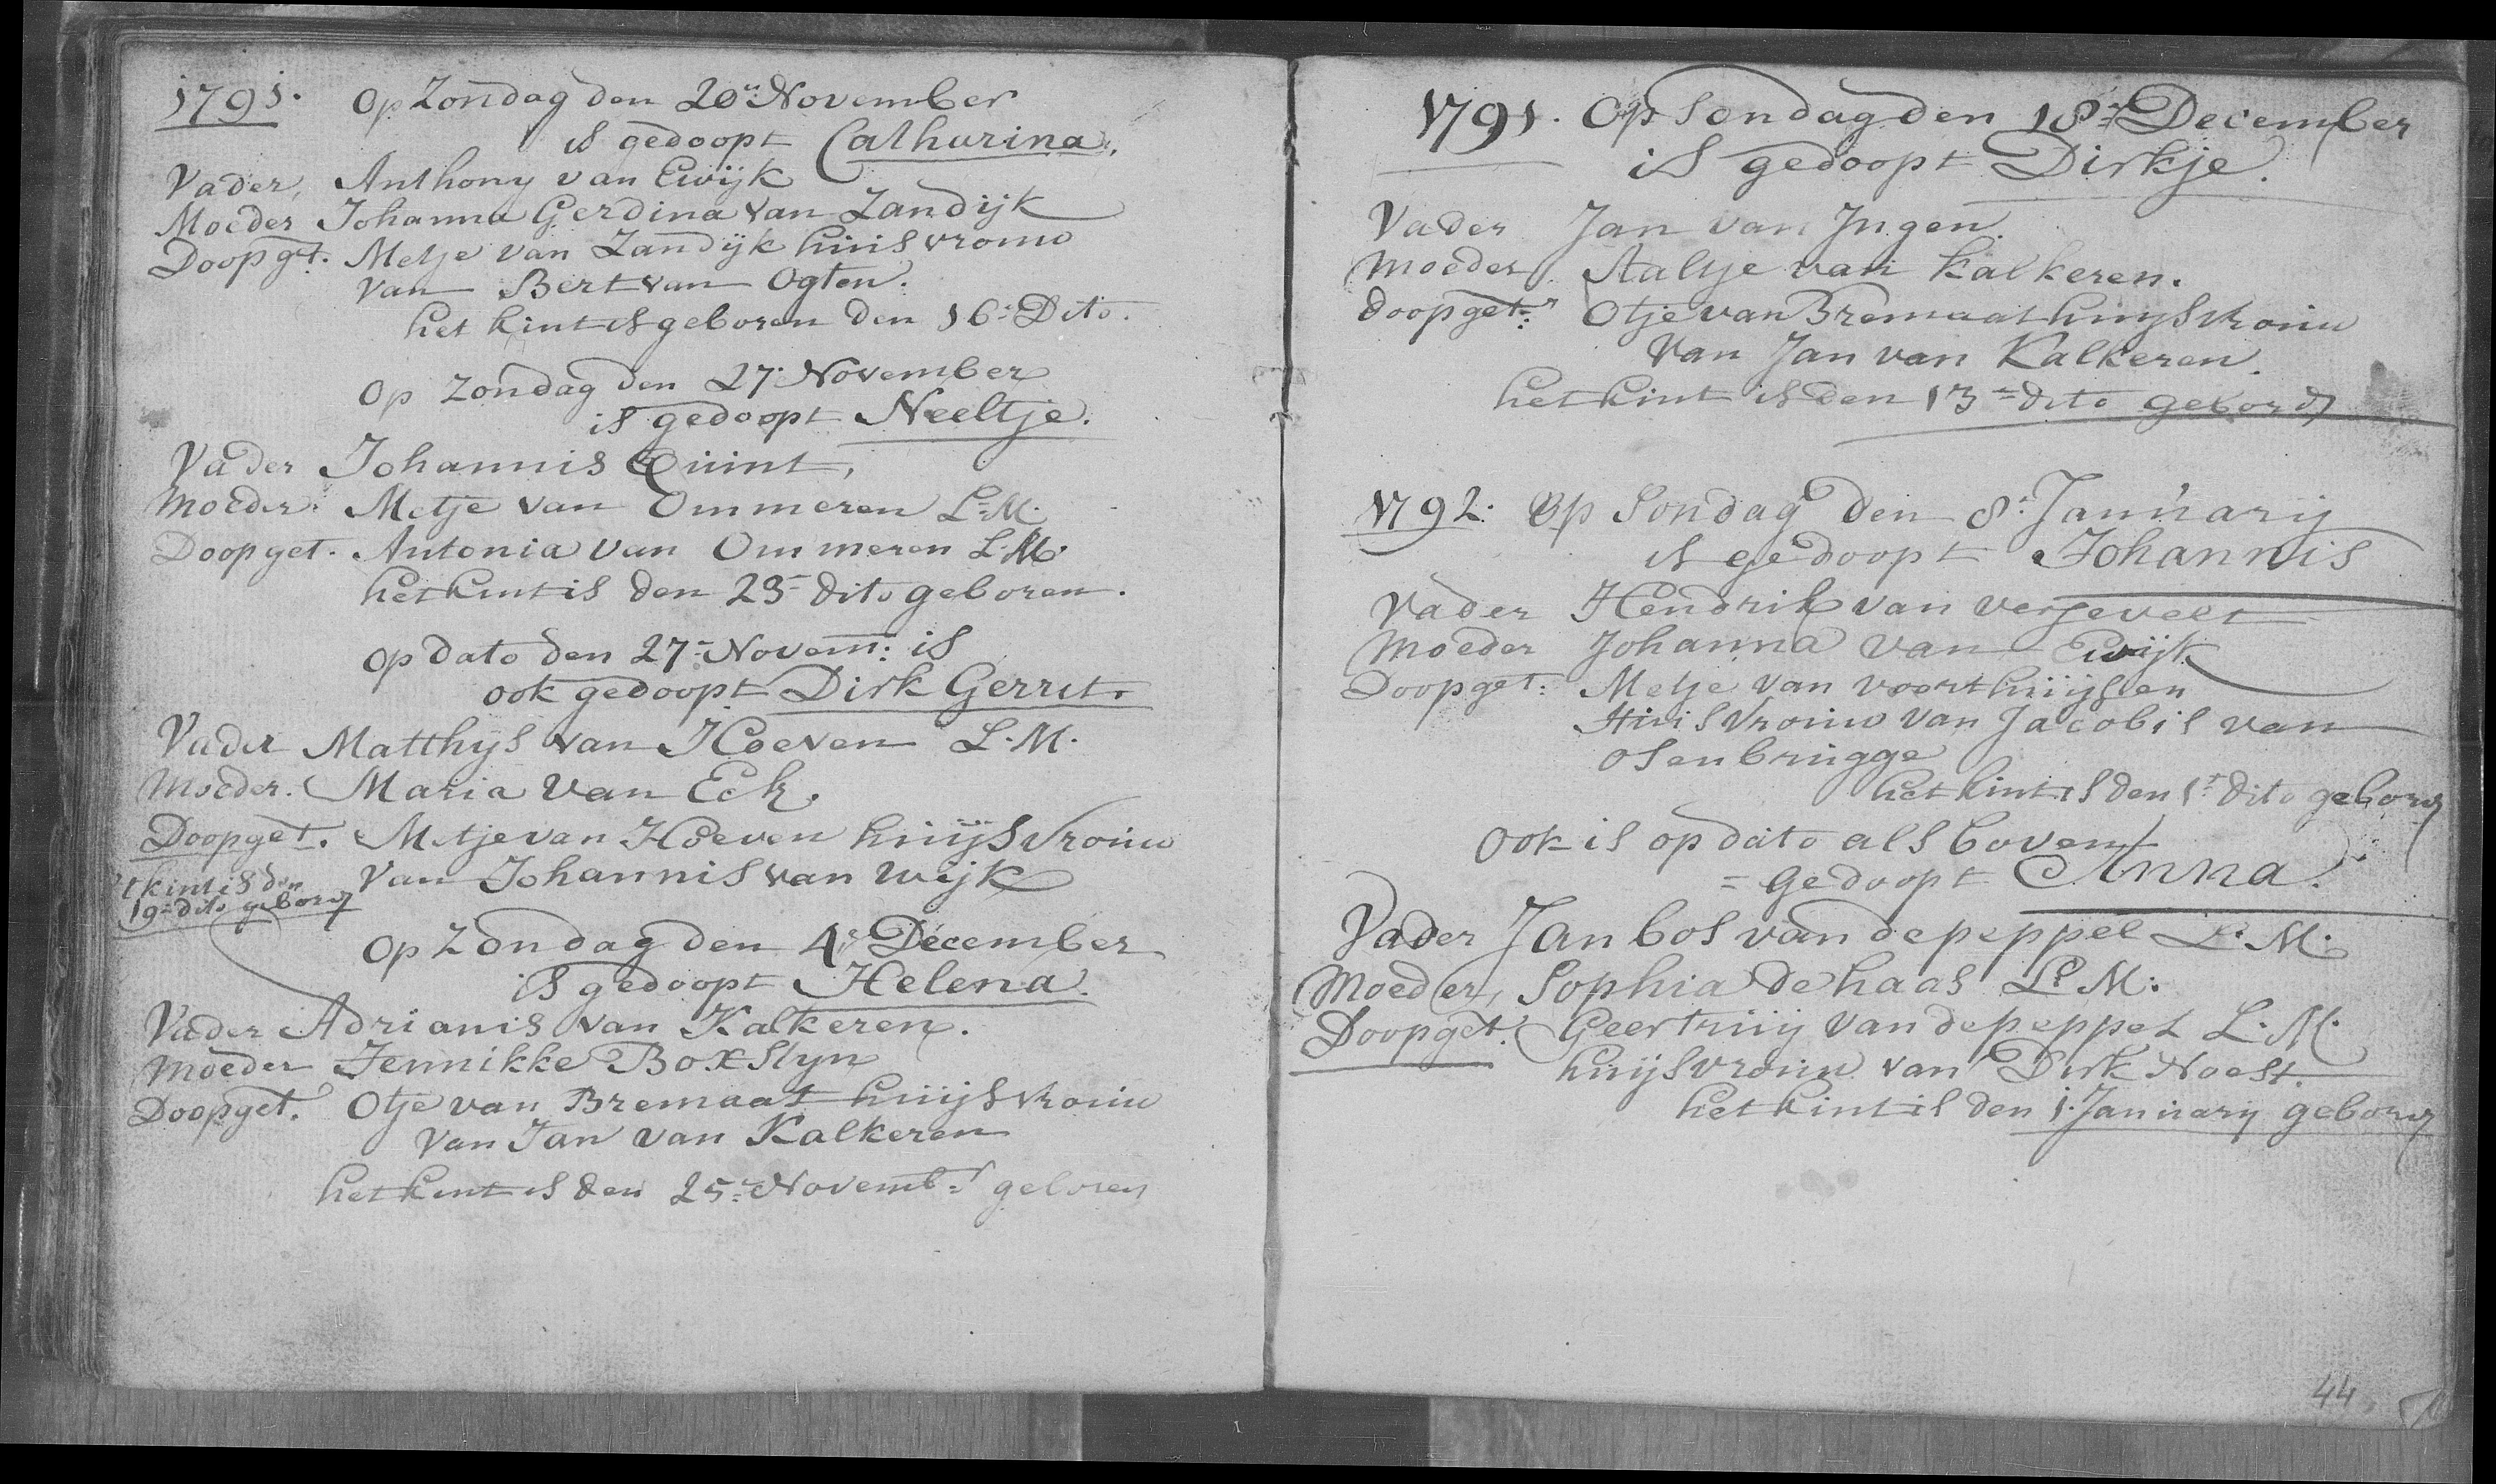 1791. Op Zondag den 20.n November
is gedoopt Catharina.
Vader, Anthony van Ewijk
Moeder Johanna Gerdina van Zandijk
Doopgt. Metje van Zandijk huisvrouw
van Bert van Ogten.
het kint is geboren den 16: Dito.
Op Zondag den 27. November
is gedoopt Neeltje.
Vader Johannis Quint,
Moeder. Metje van Ommeren L.M.
Doopget. Antonia van Ommeren L.M.
het kint is den 23 dito geboren.
op dato den 27 Novem: is
ook gedoopt Dirk Gerrit.
Vader Matthys van Hoeven L.M.
Moeder. Maria van Eck.
Doopget. Metje van Hoeven huijsvrouw
van Johannis van Wijk
't kint is den
19 dito geboren
Op Zondag den 4 December
is gedoopt Helena.
Vader Adrianis van Kalkeren.
Moeder Jennikke Boxslyn
Doopget. Otje van Bremaat huijsvrouw
van Jan van Kalkeren
het kint is den 25 Novemb.r geboren
1791. Op Sondag den 18 December
is gedoopt Dirkje.
Vader Jan van Ingen.
Moeder Aaltje van Kalkeren.
Doopget: Otje van Bremaat huijsvrouw
van Jan van Kalkeren.
het kint is den 13 dito geboren
1792. Op Sondag den 8. Januarij
is gedoopt Johannis
Vader Hendrik van versevelt
Moeder Johanna van Ewijk
Doopget: Metje van voorthuijsen
Huisvrouw van Jacobis van
osenbrugge
het kint is den 1 dito geboren
Ook is op dato als boven
= gedoopt Anna.
Vader Jan bos van de peppel L. M.
Moeder, Sophia de haas L. M.
Doopget. Geertruij van de peppel L. M.
huijsvrouw van Dirk Noest.
het kint is den 1. Januarij geboren
44